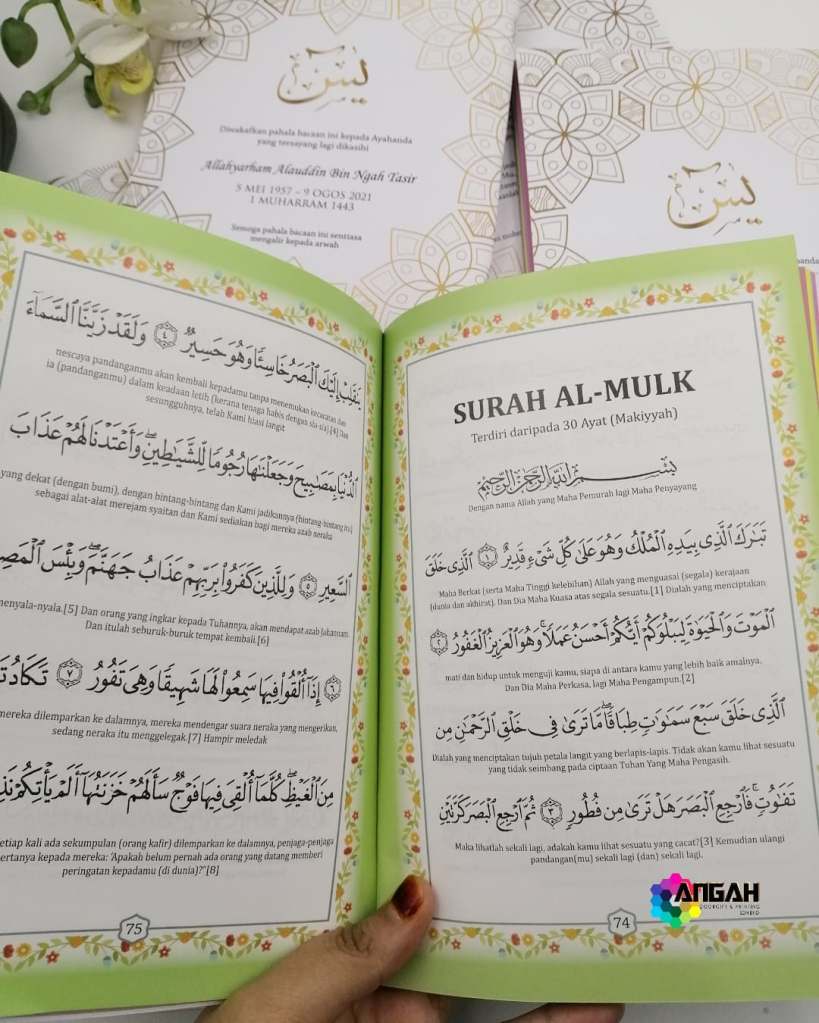 يس
Diwakafkan pahala bacaan ini kepada Ayahanda
yang tersayang lagi dikasihi
Allahyarham Alauddin Bin Ngah Tasir
5 MEI 1957 – 9 OGOS 2021
1 MUHARRAM 1443
Semoga pahala bacaan ini sentiasa
mengalir kepada arwah
يس
SURAH AL-MULK
Terdiri daripada 30 Ayat (Makiyyah)
بِسْمِ اللَّهِ الرَّحْمَٰنِ الرَّحِيمِ
Dengan nama Allah yang Maha Pemurah lagi Maha Penyayang
تَبَٰرَكَ ٱلَّذِى بِيَدِهِ ٱلْمُلْكُ وَهُوَ عَلَىٰ كُلِّ شَىْءٍ قَدِيرٌ ١ ٱلَّذِى خَلَقَ
Maha Berkat (serta Maha Tinggi kelebihan) Allah yang menguasai (segala) kerajaan
(dunia dan akhirat). Dan Dia Maha Kuasa atas segala sesuatu.[1] Dialah yang menciptakan
ٱلْمَوْتَ وَٱلْحَيَوٰةَ لِيَبْلُوَكُمْ أَيُّكُمْ أَحْسَنُ عَمَلًا ۚ وَهُوَ ٱلْعَزِيزُ ٱلْغَفُورُ ٢
mati dan hidup untuk menguji kamu, siapa di antara kamu yang lebih baik amalnya.
Dan Dia Maha Perkasa, lagi Maha Pengampun.[2]
ٱلَّذِى خَلَقَ سَبْعَ سَمَٰوَٰتٍ طِبَاقًا ۖ مَّا تَرَىٰ فِى خَلْقِ ٱلرَّحْمَٰنِ مِن
Dialah yang menciptakan tujuh petala langit yang berlapis-lapis. Tidak akan kamu lihat sesuatu
yang tidak seimbang pada ciptaan Tuhan Yang Maha Pengasih.
تَفَٰوُتٍ ۖ فَٱرْجِعِ ٱلْبَصَرَ هَلْ تَرَىٰ مِن فُطُورٍ ٣ ثُمَّ ٱرْجِعِ ٱلْبَصَرَ كَرَّتَيْنِ
Maka lihatlah sekali lagi, adakah kamu lihat sesuatu yang cacat?[3] Kemudian ulangi
pandangan(mu) sekali lagi (dan) sekali lagi.
74
يَنقَلِبْ إِلَيْكَ ٱلْبَصَرُ خَاسِئًا وَهُوَ حَسِيرٌ ٤ وَلَقَدْ زَيَّنَّا ٱلسَّمَآءَ
nescaya pandanganmu akan kembali kepadamu tanpa menemukan kecacatan dan
ia (pandanganmu) dalam keadaan letih (kerana tenaga habis dengan sia-sia).[4] Dan
sesungguhnya, telah Kami hiasi langit
ٱلدُّنْيَا بِمَصَٰبِيحَ وَجَعَلْنَٰهَا رُجُومًا لِّلشَّيَٰطِينِ ۖ وَأَعْتَدْنَا لَهُمْ عَذَابَ
yang dekat (dengan bumi), dengan bintang-bintang dan Kami jadikannya (bintang-bintang itu)
sebagai alat-alat merejam syaitan dan Kami sediakan bagi mereka azab neraka
ٱلسَّعِيرِ ٥ وَلِلَّذِينَ كَفَرُوا۟ بِرَبِّهِمْ عَذَابُ جَهَنَّمَ ۖ وَبِئْسَ ٱلْمَصِ
menyala-nyala.[5] Dan orang yang ingkar kepada Tuhannya, akan mendapat azab Jahannam.
Dan itulah seburuk-buruk tempat kembali.[6]
٦ إِذَآ أُلْقُوا۟ فِيهَا سَمِعُوا۟ لَهَا شَهِيقًا وَهِىَ تَفُورُ ٧ تَكَادُ تَ
mereka dilemparkan ke dalamnya, mereka mendengar suara neraka yang mengerikan,
sedang neraka itu menggelegak.[7] Hampir meledak
مِنَ ٱلْغَيْظِ ۖ كُلَّمَآ أُلْقِىَ فِيهَا فَوْجٌ سَأَلَهُمْ خَزَنَتُهَآ أَلَمْ يَأْتِكُمْ نَذِ
etiap kali ada sekumpulan (orang kafir) dilemparkan ke dalamnya, penjaga-penjaga
ertanya kepada mereka: 'Apakah belum pernah ada orang yang datang memberi
peringatan kepadamu (di dunia)?"[8]
75
ANGAH